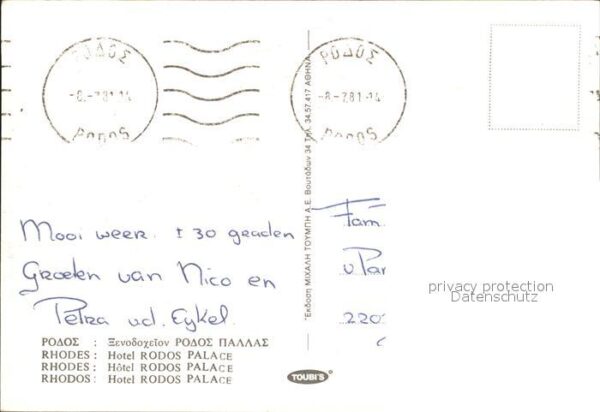 ΡΟΔΟΣ
-8.-7.81.14
ΡΟΔΟΣ
ΡΟΔΟΣ
-8.-7.81.14
ΡΟΔΟΣ
Mooi weer. ± 30 graden
Groeten van Nico en
Petra vd. Eykel.
ΡΟΔΟΣ : Ξενοδοχεῖον ΡΟΔΟΣ ΠΑΛΛΑΣ
RHODES : Hotel RODOS PALACE
RHODES : Hôtel RODOS PALACE
RHODOS : Hotel RODOS PALACE
Ἔκδοση ΜΙΧΑΛΗ ΤΟΥΜΠΗ Α.Ε. Βουτάδων 34 Τηλ. 34.57.417 ΑΘΗΝΑ
TOUBI'S
Fam
v. Par
220
privacy protection
Datenschutz